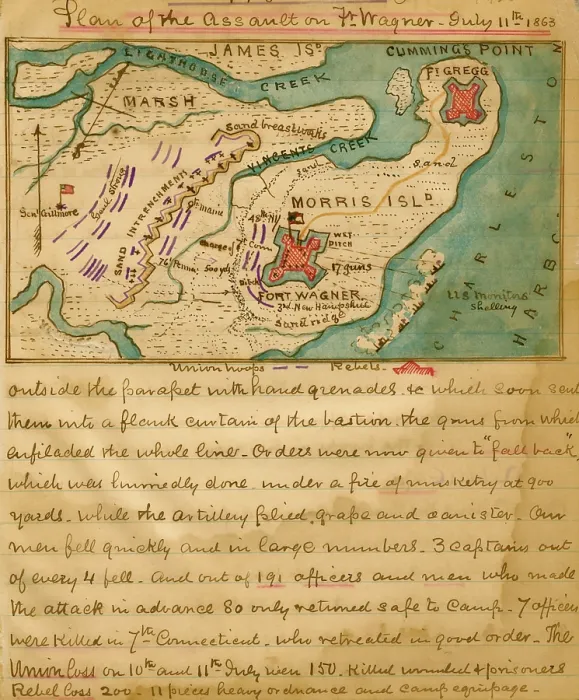 Plan of the Assault on Ft Wagner - July 11th 1863
JAMES ISD
CUMMINGS POINT
LIGHTHOUSE CREEK
FT GREGG
MARSH
Sand breastworks
VINCENTS CREEK
sand
sand
Genl Gillmore
SAND INTRENCHMENT
MORRIS ISLD
9th maine
48th NY
WET DITCH
charge of
7th Conn
76th Penna
500 yds
17 guns
Ditch
FORT WAGNER
3rd New Hampshire
Sand ridge
U S Monitors
Shelling
CHARLESTON
HARBOR
Union troops - - Rebels.
outside the parapet with hand grenades. &c which soon sent
them into a flank curtain of the bastion. the guns from which
enfiladed the whole line - Orders were now given to "fall back",
which was hurriedly done. under a fire of musketry at 900
yards. while the artillery plied grape and canister. Our
men fell quickly and in large numbers. 3 captains out
of every 4 fell. and out of 191 officers and men who made
the attack in advance 80 only returned safe to Camp. 7 officers
were killed in 7th Connecticut. who retreated in good order. The
Union loss on 10th and 11th July were 150. Killed wounded & prisoners
Rebel loss 200. 11 pieces heavy ordnance and camp equipage.